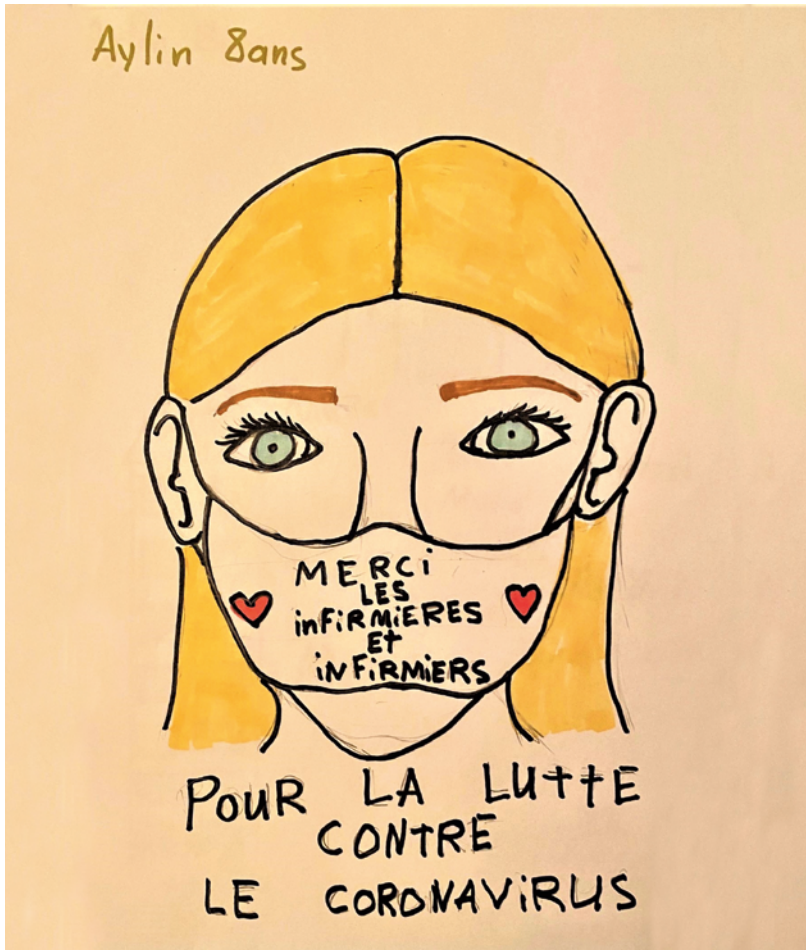 Aylin 8ans
MERCi
LES
inFiRMiERES
Et
iNFiRMiERS
POUR LA LUttE
CONtRE
LE CORONAViRUS